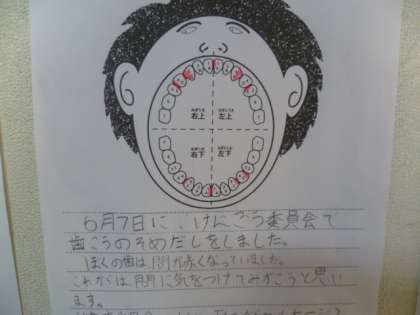 みぎうえ ひだりうえ
右上 左上
みぎした ひだりした
右下 左下
6月7日に、けんこう委員会で
歯こうのそめだしをしました。
ぼくの歯は間が赤くなっていました。
これからは間に気をつけてみがこうと思い
ます。